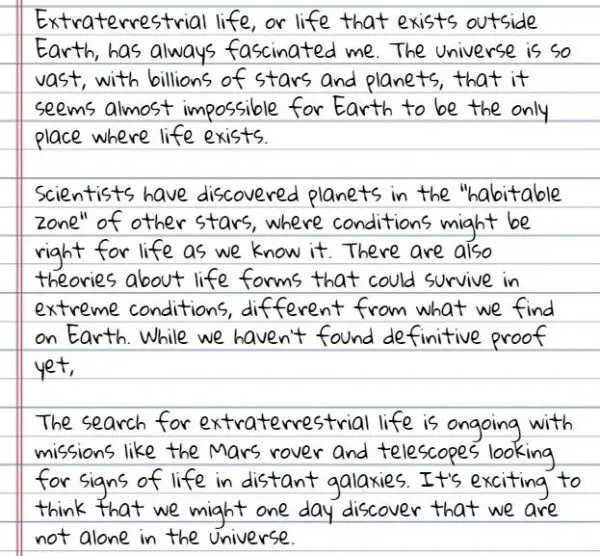 Extraterrestrial life, or life that exists outside
Earth, has always fascinated me. The universe is so
vast, with billions of stars and planets, that it
seems almost impossible for Earth to be the only
place where life exists.
Scientists have discovered planets in the "habitable
zone" of other stars, where conditions might be
right for life as we know it. There are also
theories about life forms that could survive in
extreme conditions, different from what we find
on Earth. While we haven't found definitive proof
yet,
The search for extraterrestrial life is ongoing with
missions like the Mars rover and telescopes looking
for signs of life in distant galaxies. It's exciting to
think that we might one day discover that we are
not alone in the universe.